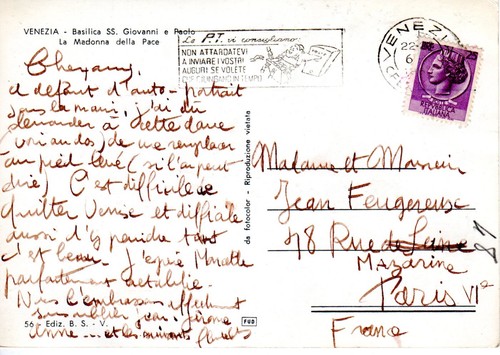 VENEZIA - Basilica SS. Giovanni e Paolo
La Madonna della Pace
Le P.T. vi consigliano:
NON ATTARDATEVI
A INVIARE I VOSTRI
AUGURI SE VOLETE
CHE GIUNGANO IN TEMPO
VENEZIA
22-
6
25
REPUBBLICA
ITALIANA
Chers amis,
A défaut d'auto-portrait
sous la main, j'ai dû
demander à cette dame
de me remplacer
au pied levé (si l'on peut
dire) C'est difficile de
quitter Venise et difficile
aussi d'y peindre tant
c'est beau. J'espère Mariette
parfaitement rétablie.
Nous l'embrassons affectueusement
sans oublier Jean-Jérôme
Anne... et les suivants
56 - Ediz. B. S. - V.
FUB
da fotocolor - Riproduzione vietata
Madame et Monsieur
Jean Feugereuse
48 Rue de Seine
Mazarine
Paris VIe
France